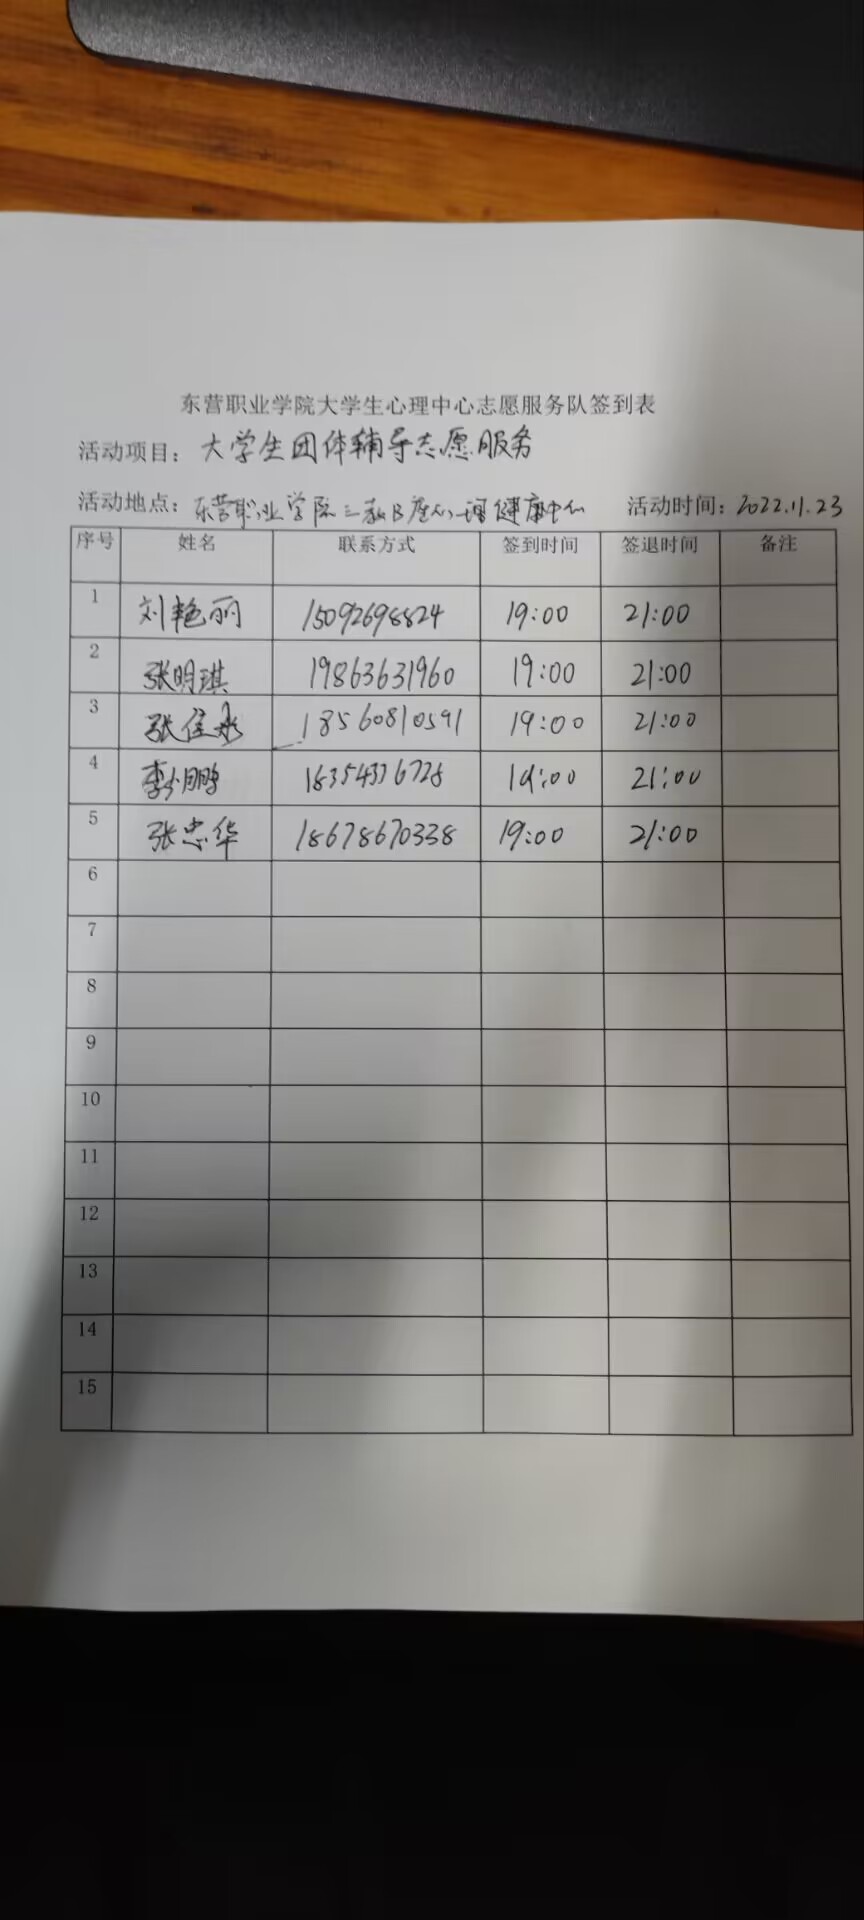 东营职业学院大学生心理中心志愿服务队签到表
活动项目：大学生团体辅导志愿服务
活动地点：东营职业学院三教B座心理健康中心 活动时间：2022.11.23
序号 姓名 联系方式 签到时间 签退时间 备注
1 刘艳丽 15092698824 19:00 21:00
2 张明琪 19863631960 19:00 21:00
3 张 18560810591 19:00 21:00
4 李 鹏 18354376728 19:00 21:00
5 张忠华 18678670338 19:00 21:00
6
7
8
9
10
11
12
13
14
15